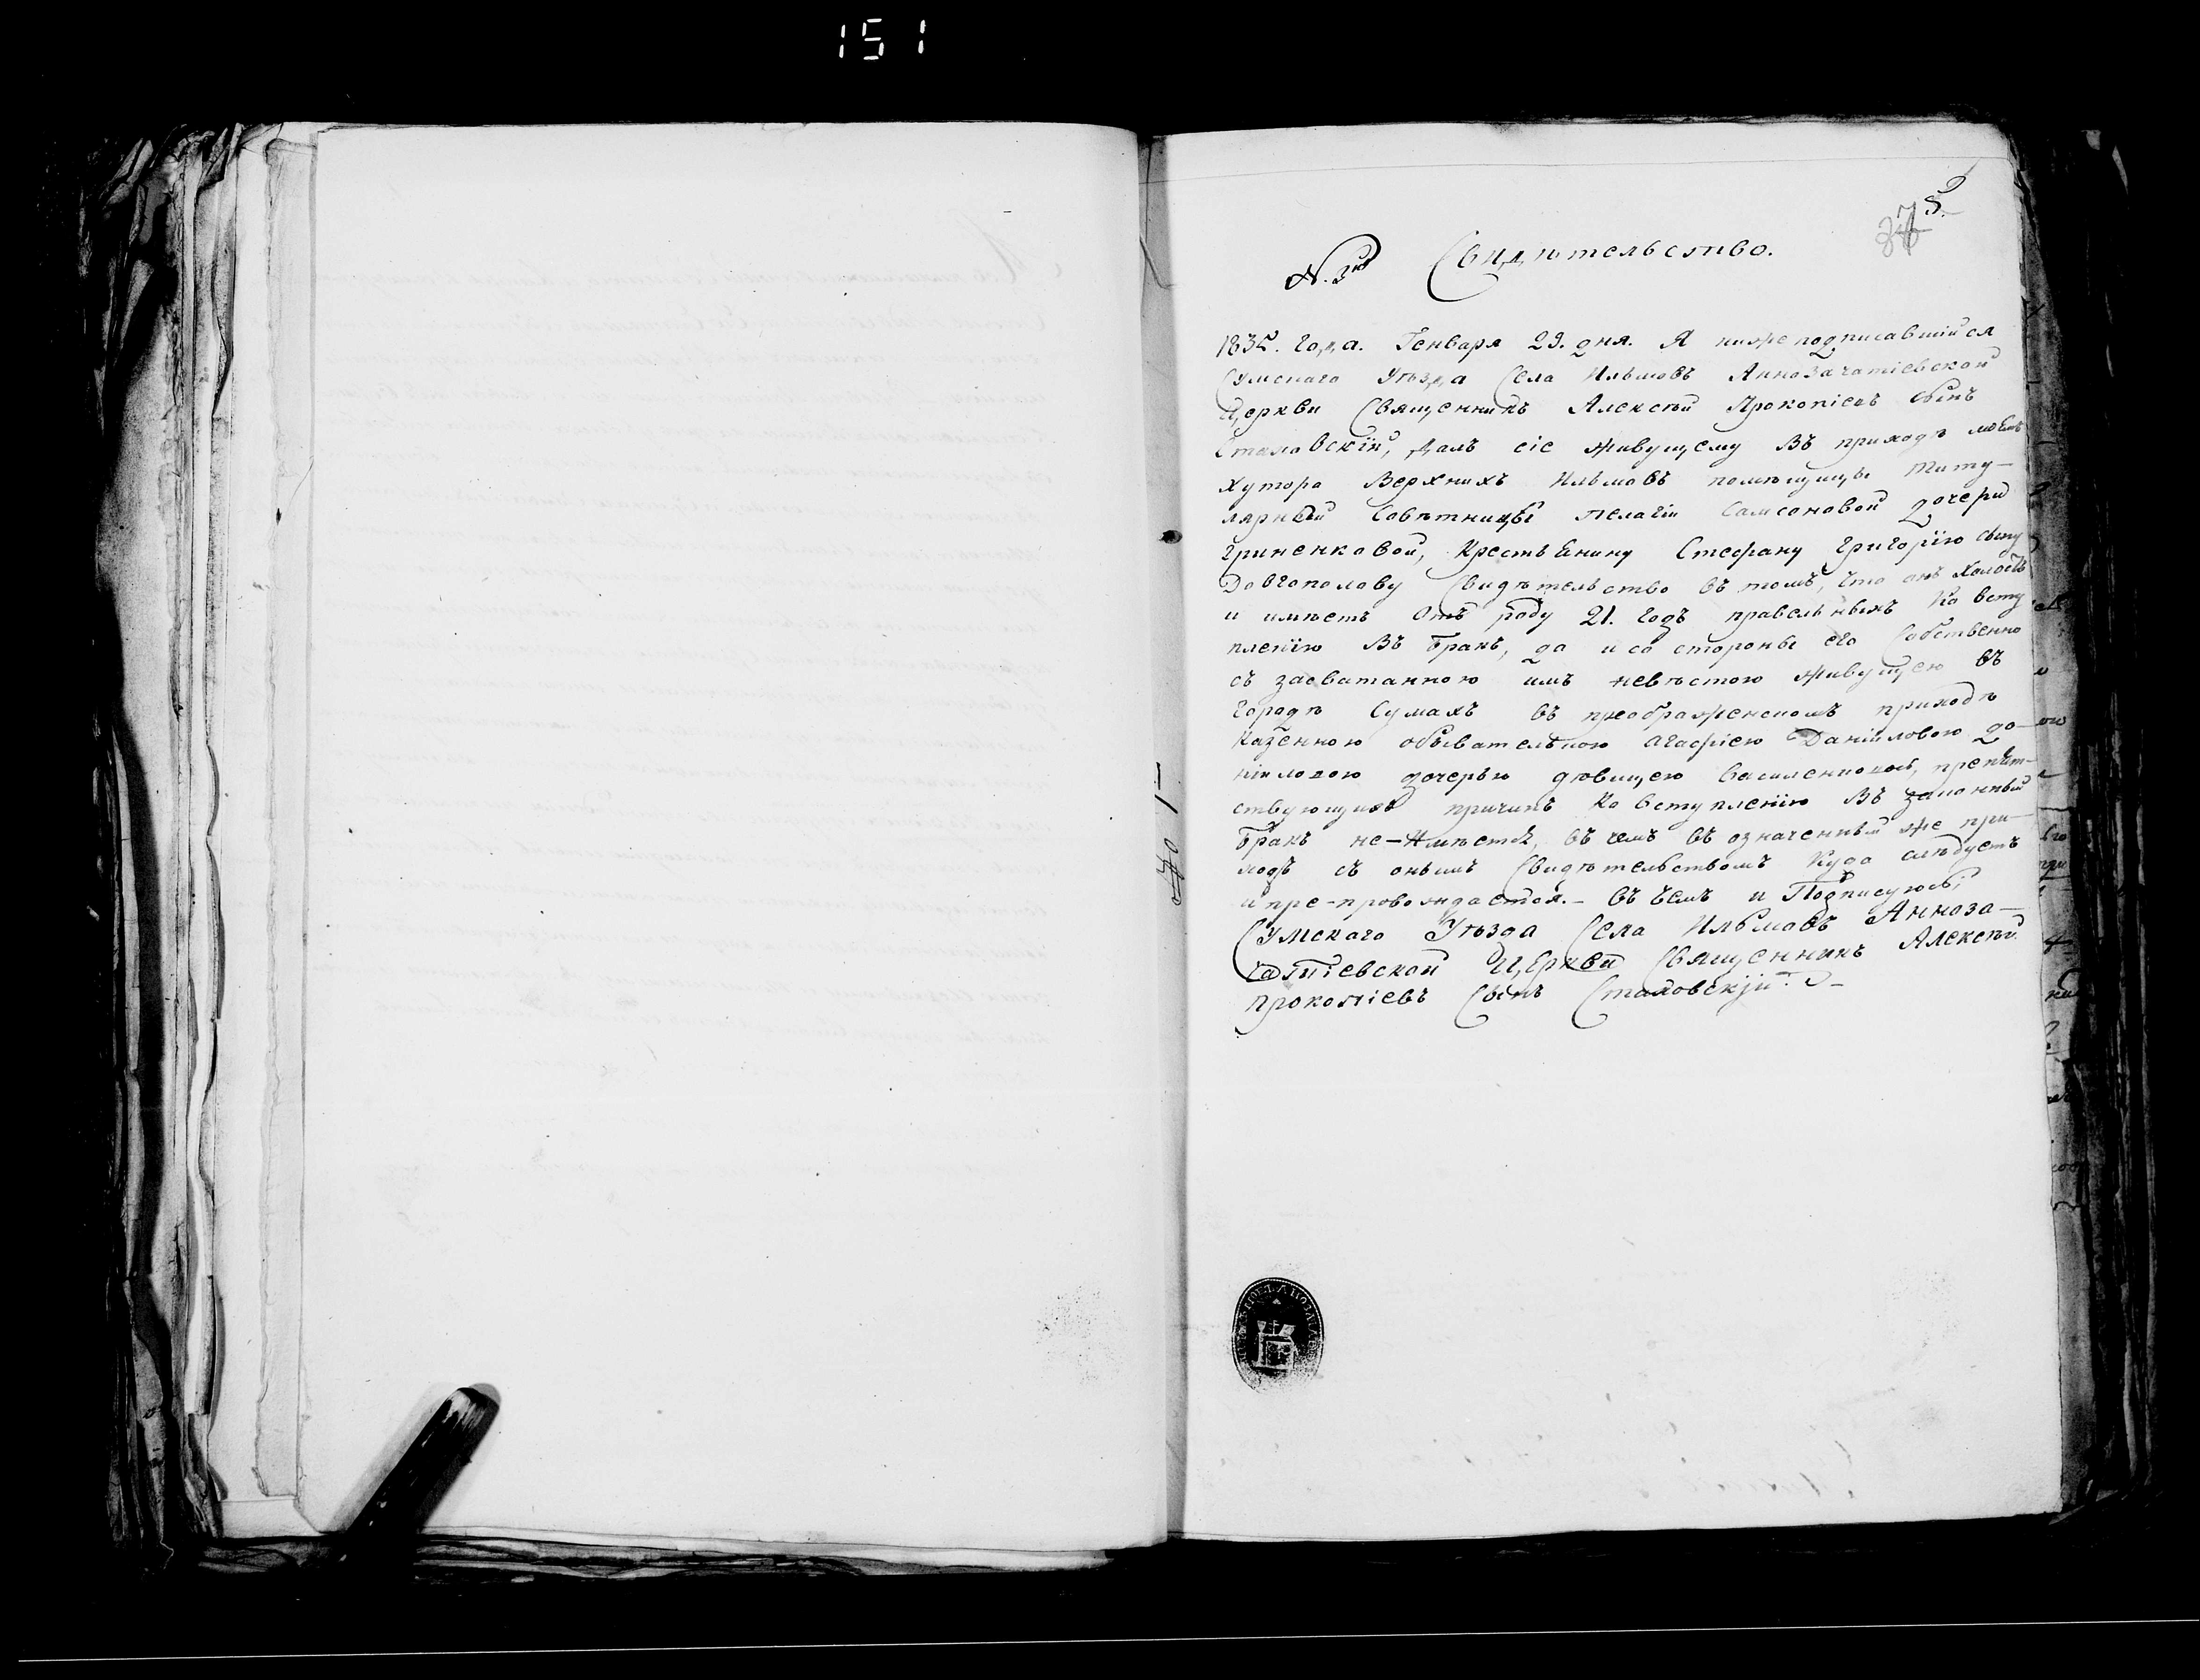 151
5.
N. 3й Свидѣтельство.
183 года. Генваря 29. дня. Я нижеподписавшійся
Сумскаго Уѣзда Села Ильмовъ Аннозачатіевской
Церкви Священникъ Алексѣй Прокопіевъ сынъ
Стаховскій, далъ сіе живущему Въ приходѣ моемъ
хутора Верхнихъ Ильмовъ помѣщицы титу-
лярный Совѣтницы пелагіи Самсоновой дочери
Гриненковой, Крестьянину Стефану Григорію сыну
Довгополову Свидѣтельство въ томъ, что онъ Холостъ
и имѣетъ Отъ роду 21. годъ правельныхъ Ко всту
пленію Въ бракъ, да и со стороны его Собственно
съ засватанною имъ невѣстою живущею въ
городѣ Сумахъ въ преображенскомъ приходѣ
Казенною обывательною агафіею Даніиловою до-
ніиловою дочерью дѣвицею Василенковой, препят-
ствующихъ причинъ Ко вступленію Въ законный
бракъ не-Имѣется, въ чемъ въ означенный же при-
ходъ съ онымъ Свидѣтельствомъ Куда слѣдуетъ
и пре-провождается.- въ чемъ и Подписуюсь;
Сумскаго Уѣзда Села Ильмовъ Анноза-
чатіевской Церкви Священникъ Алексѣй
прокопіевъ Сынъ Стаховскій.